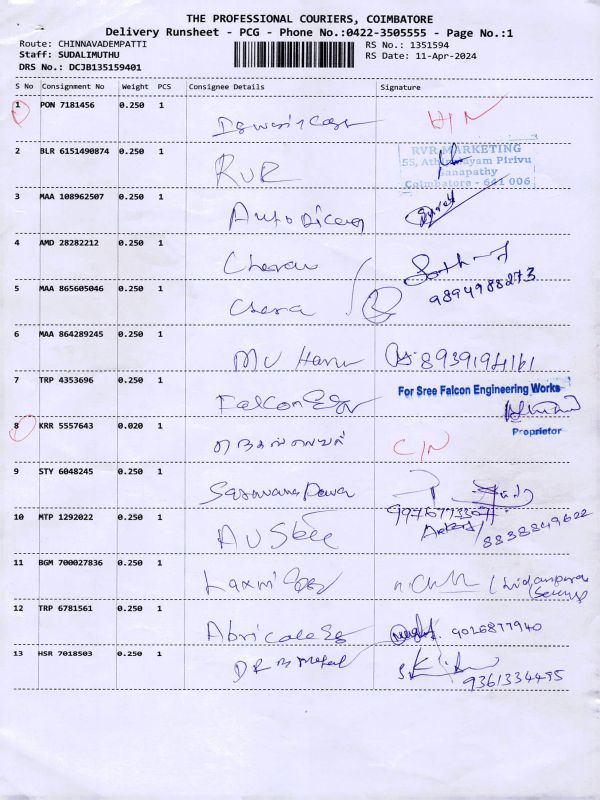 THE PROFESSIONAL COURIERS, COIMBATORE
Delivery Runsheet - PCG - Phone No.:0422-3505555 - Page No.:1
Route: CHINNAVADEMPATTI
Staff: SUDALIMUTHU
DRS No.: DCJB135159401
RS No.: 1351594
RS Date: 11-Apr-2024
S No Consignment No Weight PCS Consignee Details Signature
1 PON 7181456 0.250 1
2 BLR 6151490874 0.250 1 RVR
RVR MARKETING
Pirivu
Ganapathy
Coimbatore - 641 006
3 MAA 108962507 0.250 1
4 AMD 28282212 0.250 1 Cheran
9894988273
5 MAA 865605046 0.250 1
6 MAA 864289245 0.250 1
7 TRP 4353696 0.250 1 Falcon
For Sree Falcon Engineering Works
Proprietor
8 KRR 5557643 0.020 1 C/N
9 STY 6048245 0.250 1 Saravana Power
10 MTP 1292022 0.250 1
8838849622
11 BGM 700027836 0.250 1 Laxmi
12 TRP 6781561 0.250 1 9026877940
13 HSR 7018503 0.250 1
9361334495